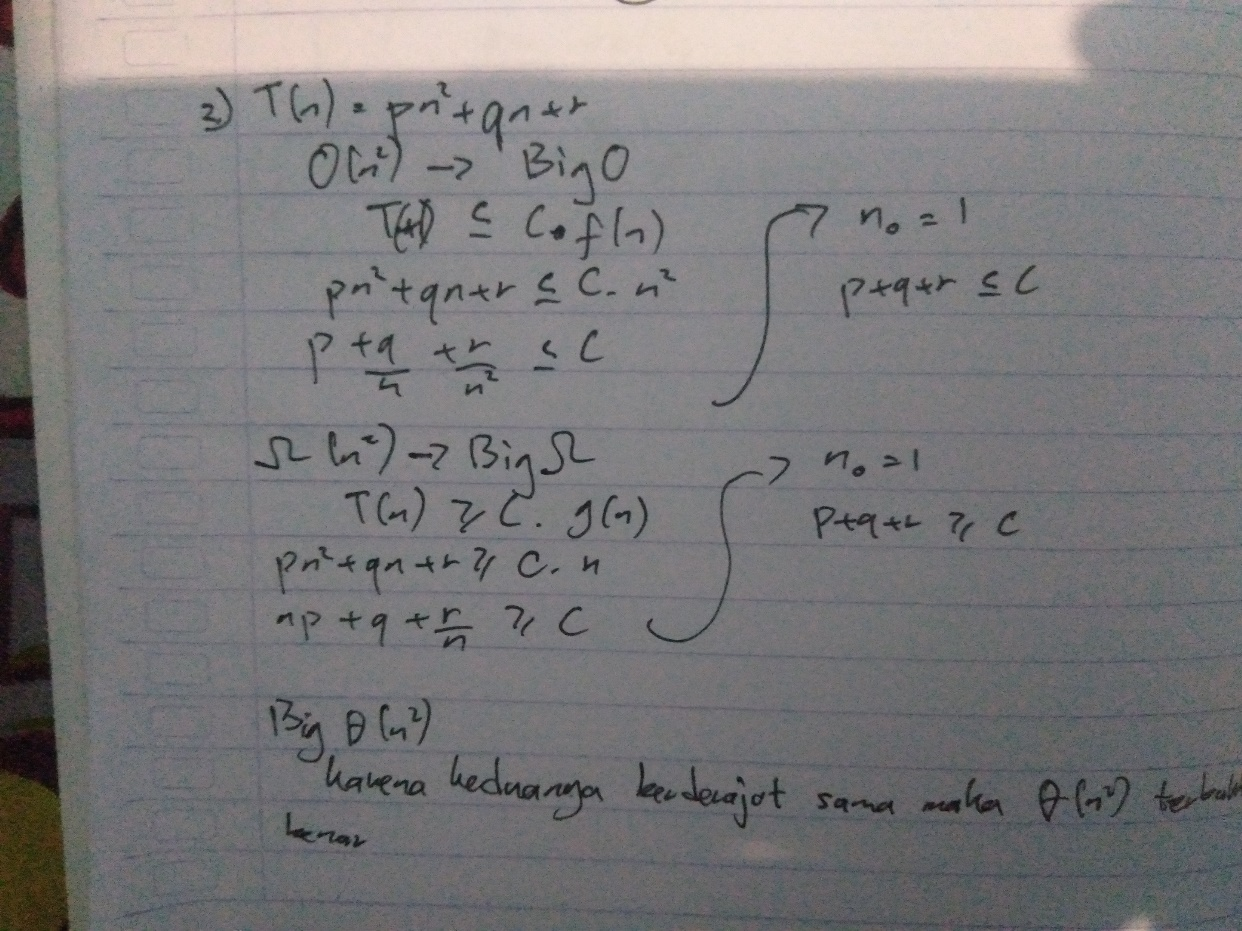 3) T(n) = pn² + qn + r
O(n²) → Big O
T(n) ≤ C. f(n)
pn² + qn + r ≤ C. n²
p + q/n + r/n² ≤ C
n₀ = 1
p + q + r ≤ C
Ω (n²) → Big Ω
T(n) ≥ C. g(n)
pn² + qn + r ≥ C. n
np + q + r/n ≥ C
n₀ = 1
p + q + r ≥ C
Big θ (n²)
karena keduanya berderajat sama maka θ (n²)
benar